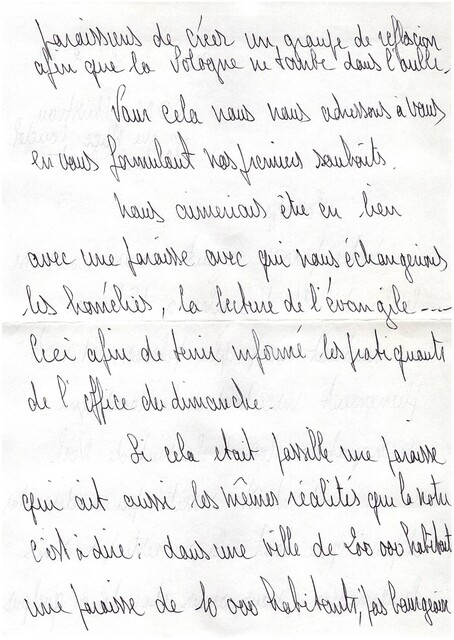 paroissiens de créer un groupe de reflexion
afin que la Pologne ne tombe dans l'oubli.
Pour cela nous nous adressons à vous
en vous formulant nos premiers souhaits.
Nous aimerions etre en lien
avec une paroisse avec qui nous échangerions
les homélies, la lecture de l'évangile ----
Ceci afin de tenir informé les pratiquants
de l'office du dimanche.
Si cela etait possible une paroisse
qui ait aussi les mêmes réalités que la notre
c'est à dire: dans une ville de 200 000 habitants
une paroisse de 10 000 habitants, pas bourgeoise